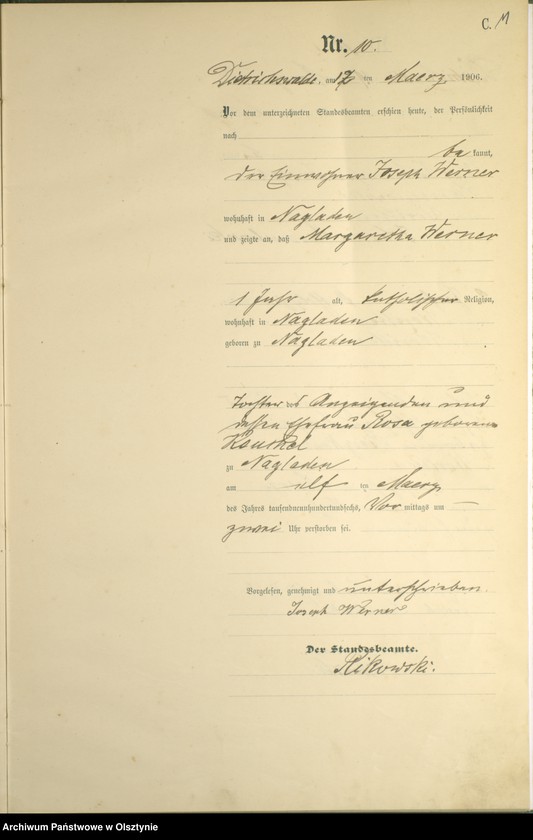 C.
Nr. 10.
Dietrichswalde, am 12 ten Maerz 1906.
Vor dem unterzeichneten Standesbeamten erschien heute, der Persönlichkeit
nach
be kannt,
der Einwohner Joseph Werner
wohnhaft in Nagladen
und zeigte an, daß Margaretha Werner
1 Jahr alt, katholischer Religion,
wohnhaft in Nagladen
geboren zu Nagladen
Tochter des Anzeigenden und
dessen Ehefrau Rosa geborene
zu Nagladen
am elf ten Maerz
des Jahres tausendneunhundertundsechs, Vor mittags um
zwei Uhr verstorben sei.
Vorgelesen, genehmigt und unterschrieben.
Joseph Werner
Der Standesbeamte.
Archiwum Państwowe w Olsztynie